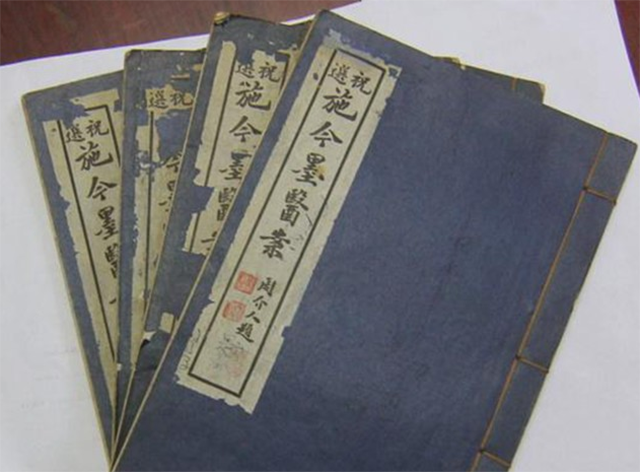 祝選
施今墨醫案
周介人題
祝選
施今墨醫案
祝選
今
祝選
施今墨醫